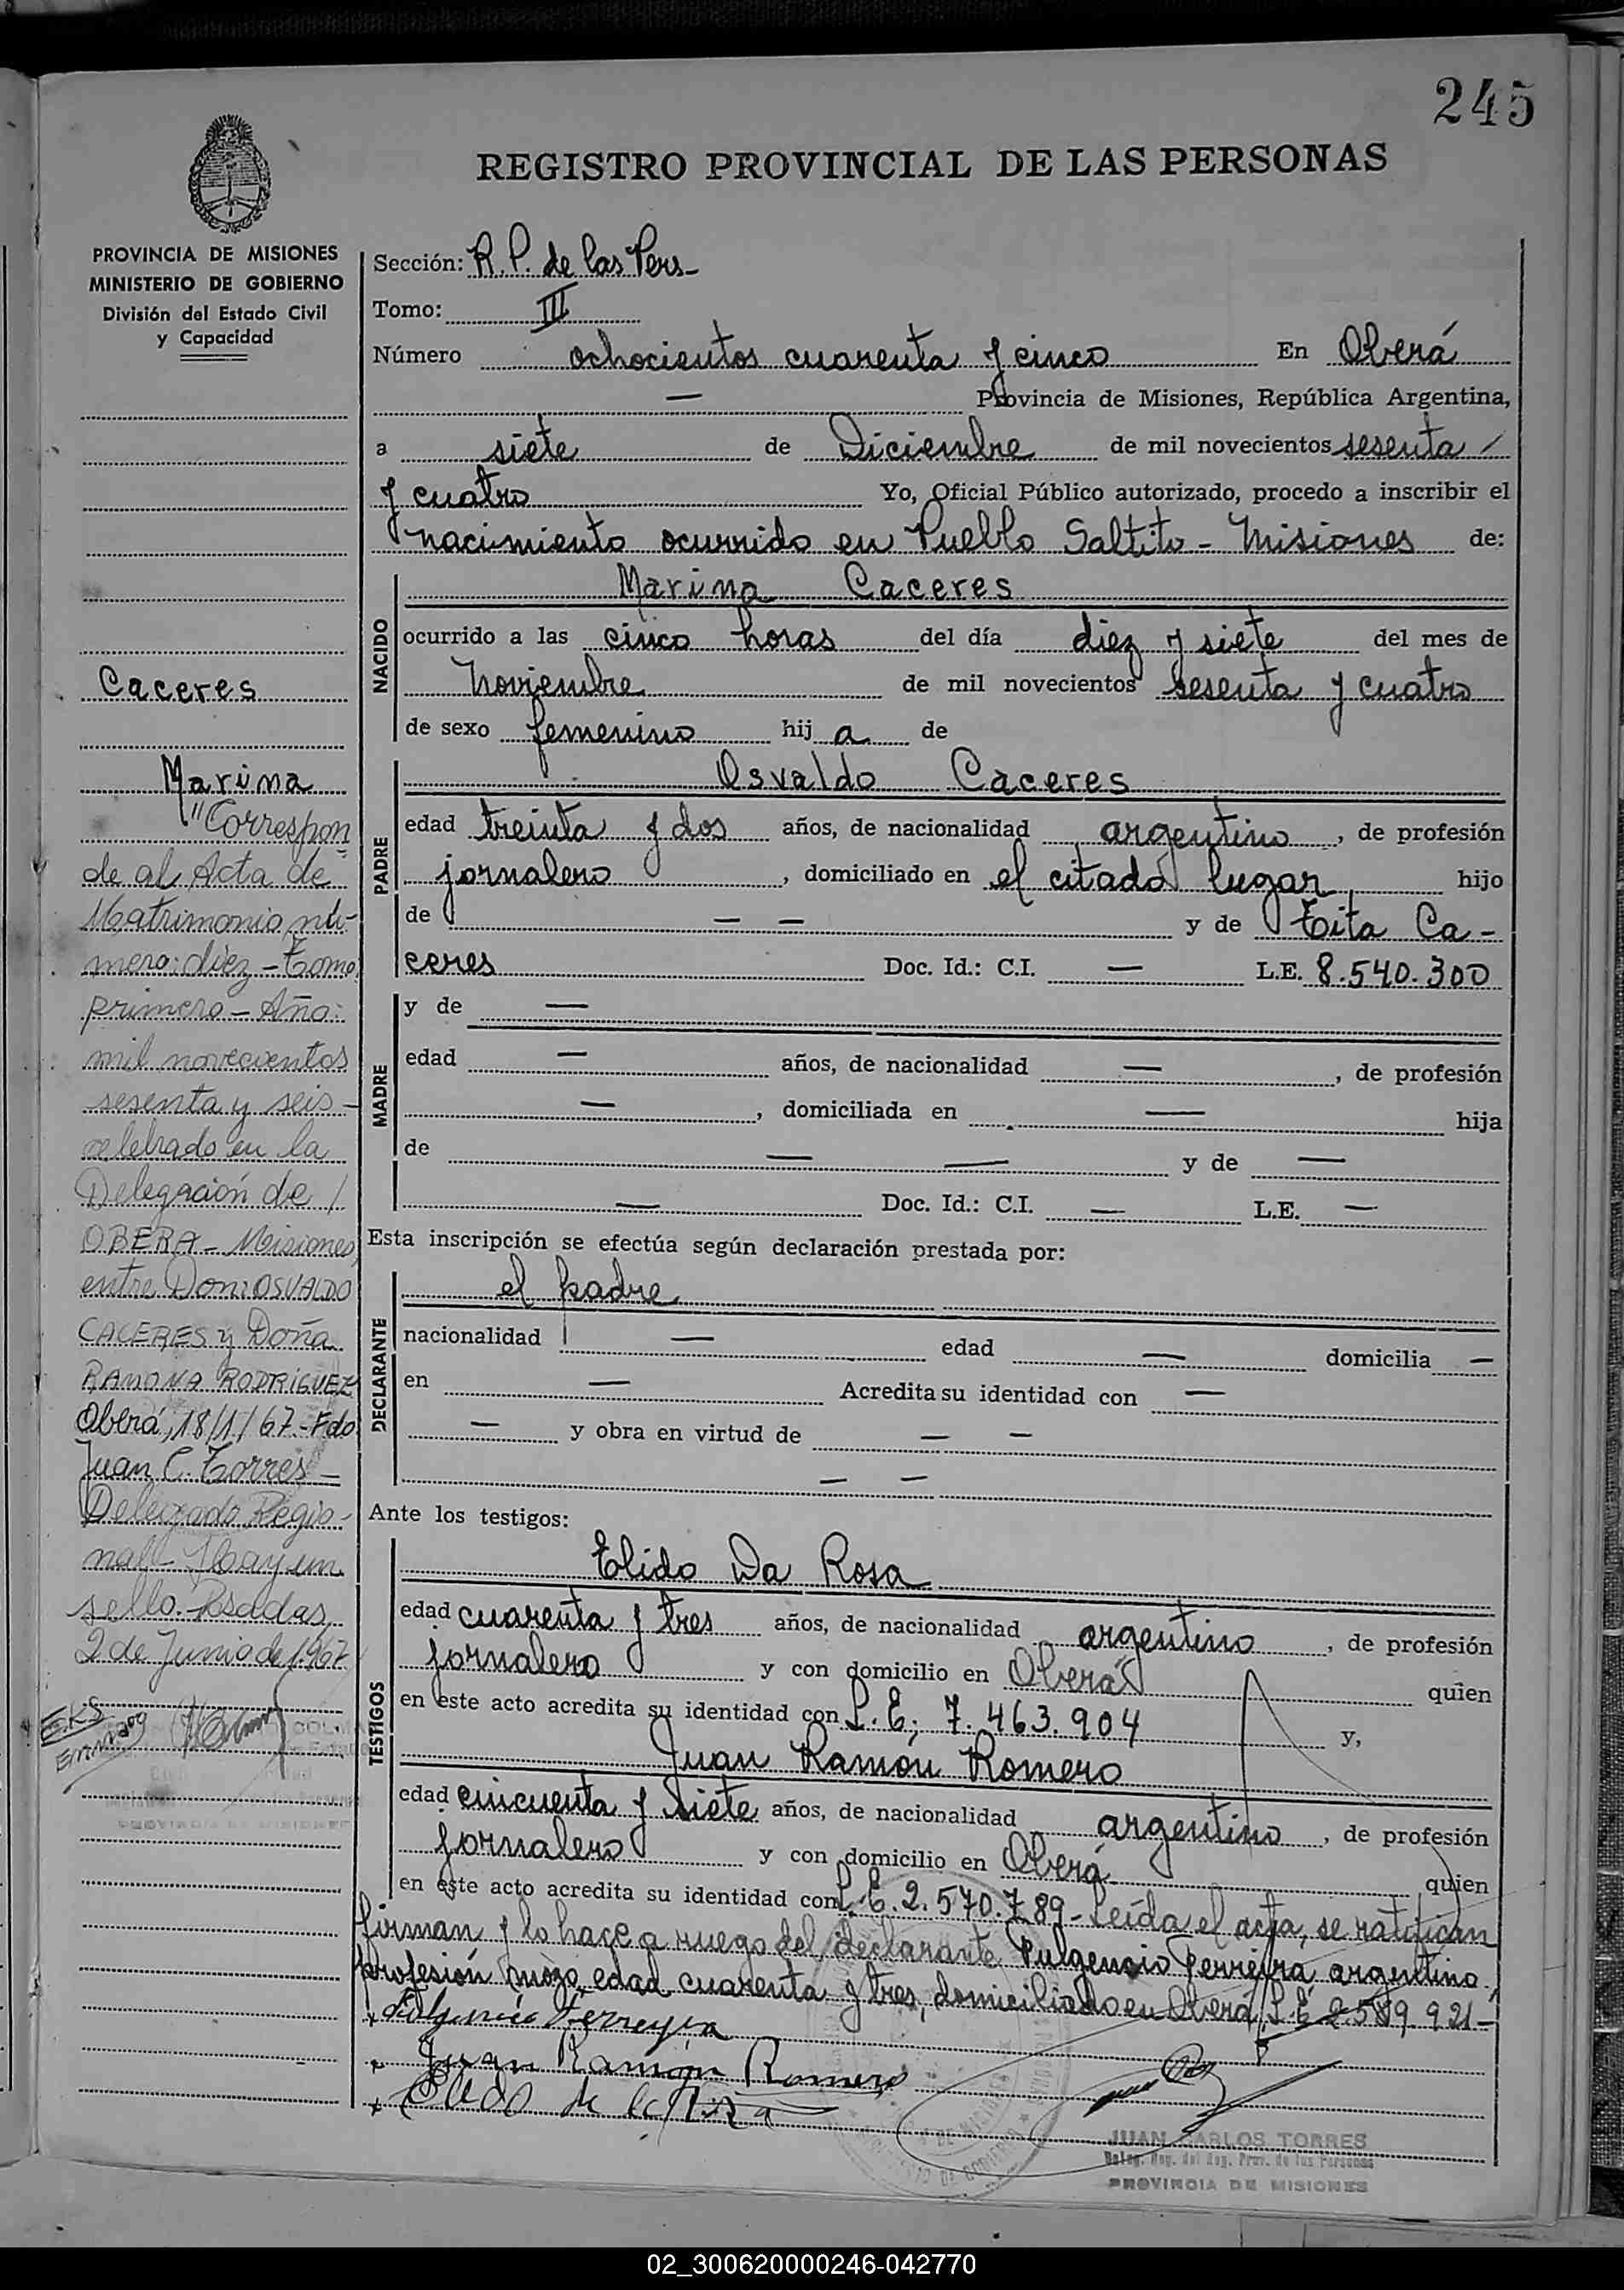 245
REGISTRO PROVINCIAL DE LAS PERSONAS
PROVINCIA DE MISIONES
MINISTERIO DE GOBIERNO
División del Estado Civil
y Capacidad
Caceres
Marina
"Correspon
de al Acta de
Matrimonio nú-
mero: diez - Tomo
primero - Año:
mil novecientos
sesenta y seis -
celebrado en la
Delegación de /
OBERA - Misiones,
entre Don: OSVALDO
CACERES y Doña
RAMONA RODRIGUEZ
Oberá, 18/1/67.- Fdo
Juan C. Torres -
Delegado Regio-
nal - Hay un
sello. Posadas,
2 de Junio de 1967
E.K.S.
PROVINCIA DE MISIONES
Sección: R. P. de las Pers-
Tomo: III
Número ochocientos cuarenta y cinco En Oberá
— Provincia de Misiones, República Argentina,
a siete de Diciembre de mil novecientos sesenta /
y cuatro Yo, Oficial Público autorizado, procedo a inscribir el
nacimiento ocurrido en Pueblo Saltito - Misiones de:
NACIDO
Marina Caceres
ocurrido a las cinco horas del día diez y siete del mes de
Noviembre de mil novecientos sesenta y cuatro
de sexo femenino hij a de
PADRE
Osvaldo Caceres
edad treinta y dos años, de nacionalidad argentino, de profesión
jornalero, domiciliado en el citado lugar hijo
de — — y de Tita Ca-
ceres Doc. Id.: C.I. — L.E. 8.540.300
MADRE
y de —
edad — años, de nacionalidad —, de profesión
—, domiciliada en — hija
de — — y de —
— Doc. Id.: C.I. — L.E. —
Esta inscripción se efectúa según declaración prestada por:
DECLARANTE
el padre
nacionalidad — edad — domicilia —
en — Acredita su identidad con —
— y obra en virtud de — —
— —
Ante los testigos:
TESTIGOS
Elido Da Rosa
edad cuarenta y tres años, de nacionalidad argentino, de profesión
jornalero y con domicilio en Oberá quien
en este acto acredita su identidad con L. E. 7.463.904 y,
Juan Ramón Romero
edad cincuenta y siete años, de nacionalidad argentino, de profesión
jornalero y con domicilio en Oberá quien
en este acto acredita su identidad con L. E. 2.570.789 - Leída el acta, se ratifican
firman y lo hace a ruego del declarante Fulgencio Ferreyra argentino,
profesión mozo, edad cuarenta y tres, domiciliado en Oberá, L. E. 2.589.921 -
Fulgencio Ferreyra
Juan Ramón Romero
Elido de la Rosa
JUAN CARLOS TORRES
Deleg. Reg. del Reg. Prov. de las Personas
PROVINCIA DE MISIONES
02_300620000246-042770